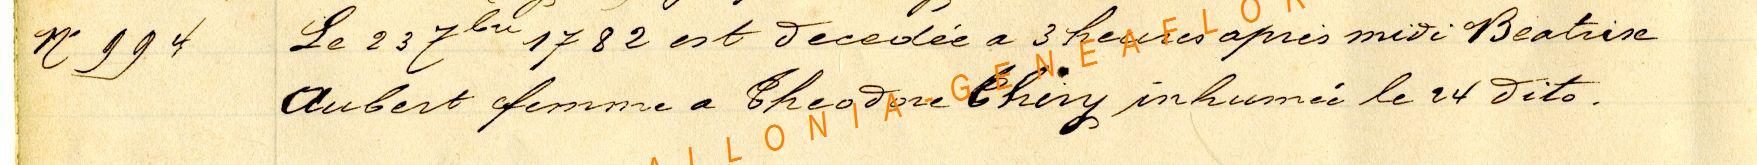 N° 994 Le 23 7bre 1782 est decedée a 3 heures apres midi Beatrise
Aubert femme a Theodore Thiry inhumée le 24 dito.